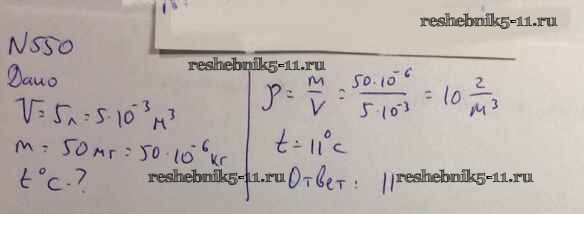 reshebnik5-11.ru
N550
reshebnik5-11.ru
Дано
V = 5л = 5·10⁻³ м³
m = 50 мг = 50·10⁻⁶ кг
t°C - ?
ρ = m/V = 50·10⁻⁶/5·10⁻³ = 10 г/м³
t = 11°C
reshebnik5-11.ru
Ответ: 11
reshebnik5-11.ru